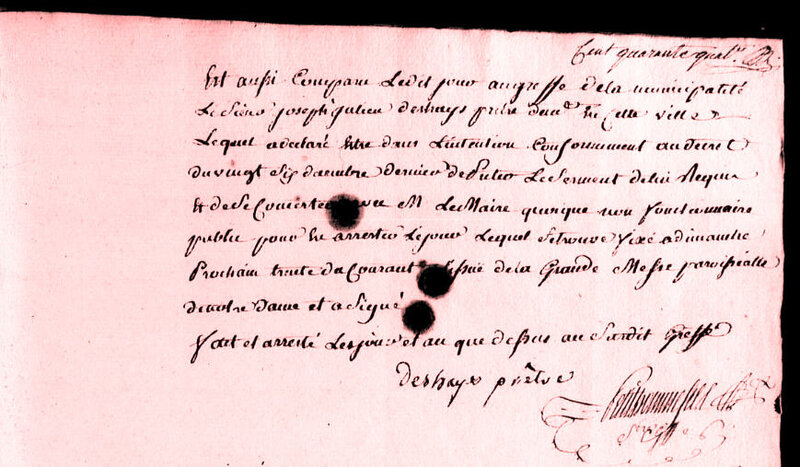 Cent quarante quat.
Est aussi Comparu Ledit jour au greffe de la municipalité
Le Sieur joseph julien deshays prêtre dem.t En Cette ville
Lequel a declaré Etre dans L'intention Conformement au decret
du vingt Six decembre dernier de preter Le Serment de lui Requis
Et de Se Concerter avec M Le Maire quoique non fonctionnaire
public pour En arrester Le jour Lequel Se trouve fixé a dimanche
Prochain trente du Courant issue de la Grande Messe paroissialle
de notre dame et a Signé
fait et arresté Les jour et an que dessus au Susdit Greffe
Deshays prêtre